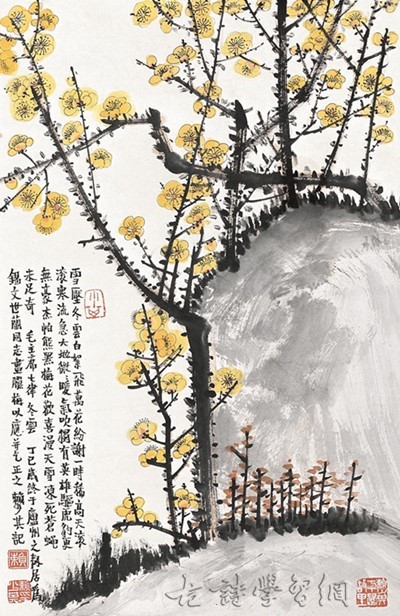 雪壓冬雲白絮飛萬花紛謝一時稀高天滾
滾寒流急大地微微暖氣吹獨有英雄驅虎豹更
無豪杰怕熊羆梅花歡喜漫天雪凍死蒼蠅
未足奇 毛主席七律冬雲 丁巳歲終于廬州之居爲
錫文世蘭同志畫臘梅以應并乞正之 賴少其記